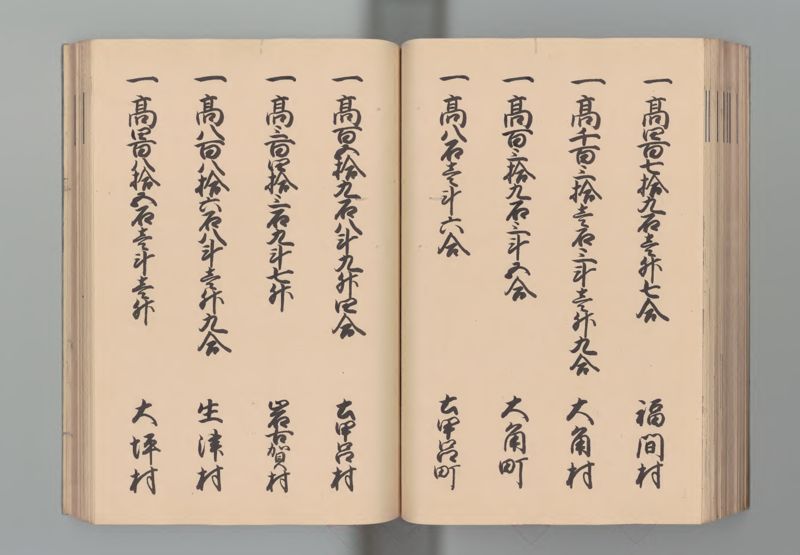 一 高四百七拾九石壱升七合 福間村
一 高千百三拾壱石三斗壱升九合 大角村
一 高百三拾九石三斗五合 大角町
一 高八石壱斗六合 吉甲呂町
一 高百五拾九石八斗九升四合 吉甲呂村
一 高三百四拾三石九斗七升 岩古賀村
一 高八百八拾六石八斗壱升九合 生津村
一 高四百八拾五石壱斗壱升 大坪村